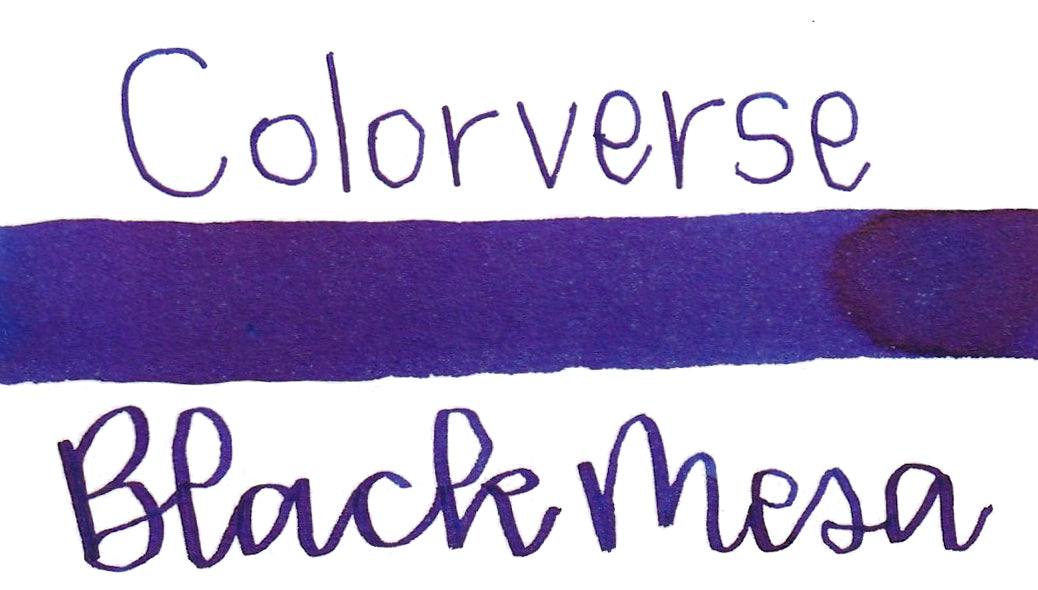 Colorverse
Black Mesa